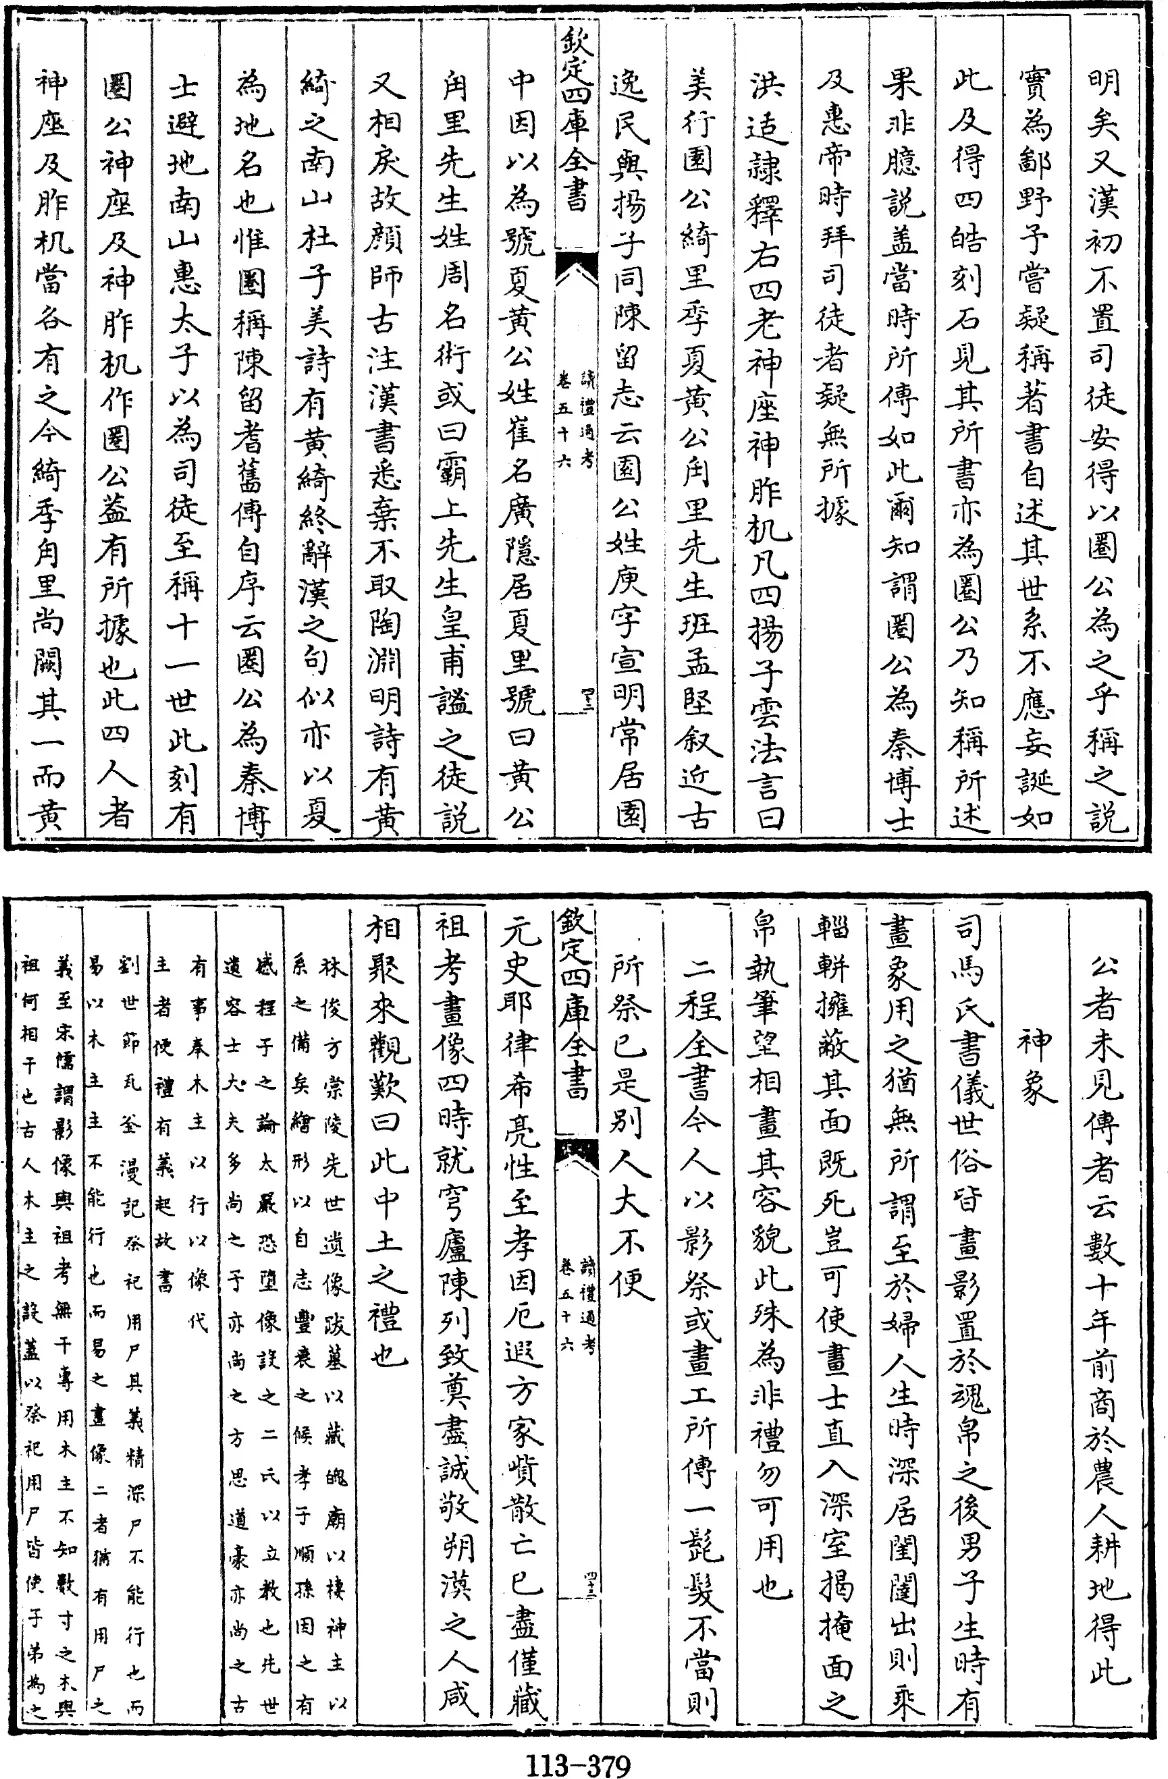 明矣又漢初不置司徒安得以圈公為之乎稱之說
實為鄙野予嘗疑稱著書自述其世系不應妄誕如
此及得四皓刻石見其所書亦為圈公乃知稱所述
果非臆說盖當時所傳如此爾知謂圈公為秦博士
及惠帝時拜司徒者疑無所據
洪适隷釋右四老神座神胙机凡四揚子雲法言曰
美行園公綺里季夏黃公角里先生班孟堅叙近古
逸民與揚子同陳留志云園公姓庾字宣明常居園
欽定四庫全書
讀禮通考
卷五十六
中因以為號夏黃公姓崔名廣隱居夏里號曰黃公
角里先生姓周名術或曰霸上先生皇甫謐之徒說
又相戾故顔師古注漢書悉棄不取陶淵明詩有黃
綺之南山杜子美詩有黃綺終辭漢之句似亦以夏
為地名也惟圈稱陳留耆舊傳自序云圈公為秦博
士避地南山惠太子以為司徒至稱十一世此刻有
圈公神座及神胙机作圈公葢有所據也此四人者
神座及胙机當各有之今綺季角里尚闕其一而黃
公者未見傳者云數十年前商於農人耕地得此
神象
司馬氏書儀世俗皆畫影置於魂帛之後男子生時有
畫象用之猶無所謂至於婦人生時深居閨闥出則乘
輜軿擁蔽其面既死豈可使畫士直入深室揭掩面之
帛執筆望相畫其容貌此殊為非禮勿可用也
二程全書今人以影祭或畫工所傳一髭髮不當則
所祭已是别人大不便
欽定四庫全書
讀禮通考
卷五十六
四十三
元史耶律希亮性至孝因厄遐方家貲散亡已盡僅藏
祖考畫像四時就穹廬陳列致奠盡誠敬朔漠之人咸
相聚來觀歎曰此中土之禮也
林俊方棠陵先世遺像跋墓以藏魄廟以棲神主以
系之備矣繪形以自志豐衰之候孝子順孫因之有
感程子之論太嚴恐墮像設之二氏以立教也先世
遺容士大夫多尚之予亦尚之方思道豪亦尚之古
有事奉木主以行以像代
主者便禮有義起故書
劉世節瓦釜漫記祭祀用尸其義精深尸不能行也而
易以木主主不能行也而易之畫像二者猶有用尸之
義至宋儒謂影像與祖考無干專用木主不知數寸之木與
祖何相干也古人木主之設葢以祭祀用尸皆使子弟為之
113-379